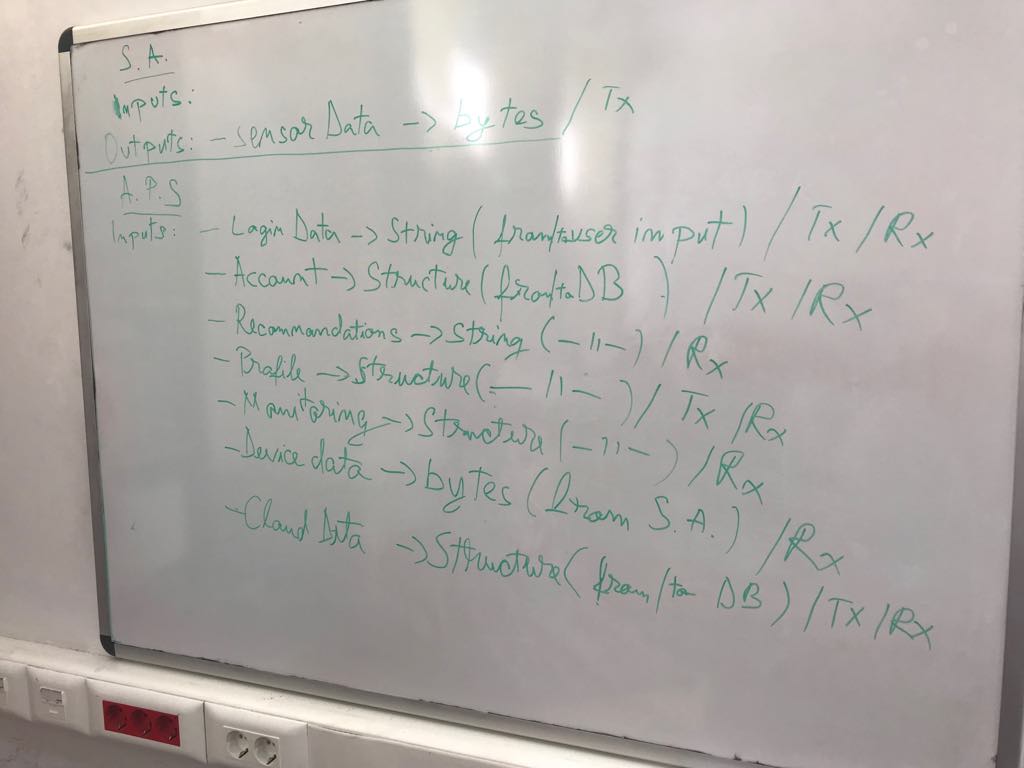 S.A.
Inputs:
Outputs: - sensor Data -> bytes / Tx
A.P.S
Inputs: - Login Data -> String ( from/to user input ) / Tx / Rx
- Account -> Structure ( from/to DB ) / Tx / Rx
- Recommandations -> String ( - 11 - ) / Rx
- Profile -> Structure ( - 11 - ) / Tx / Rx
- Monitoring -> Structure ( - 11 - ) / Rx
- Device data -> bytes ( from S.A. ) / Rx
- Cloud Data -> Structure ( from/to DB ) / Tx / Rx